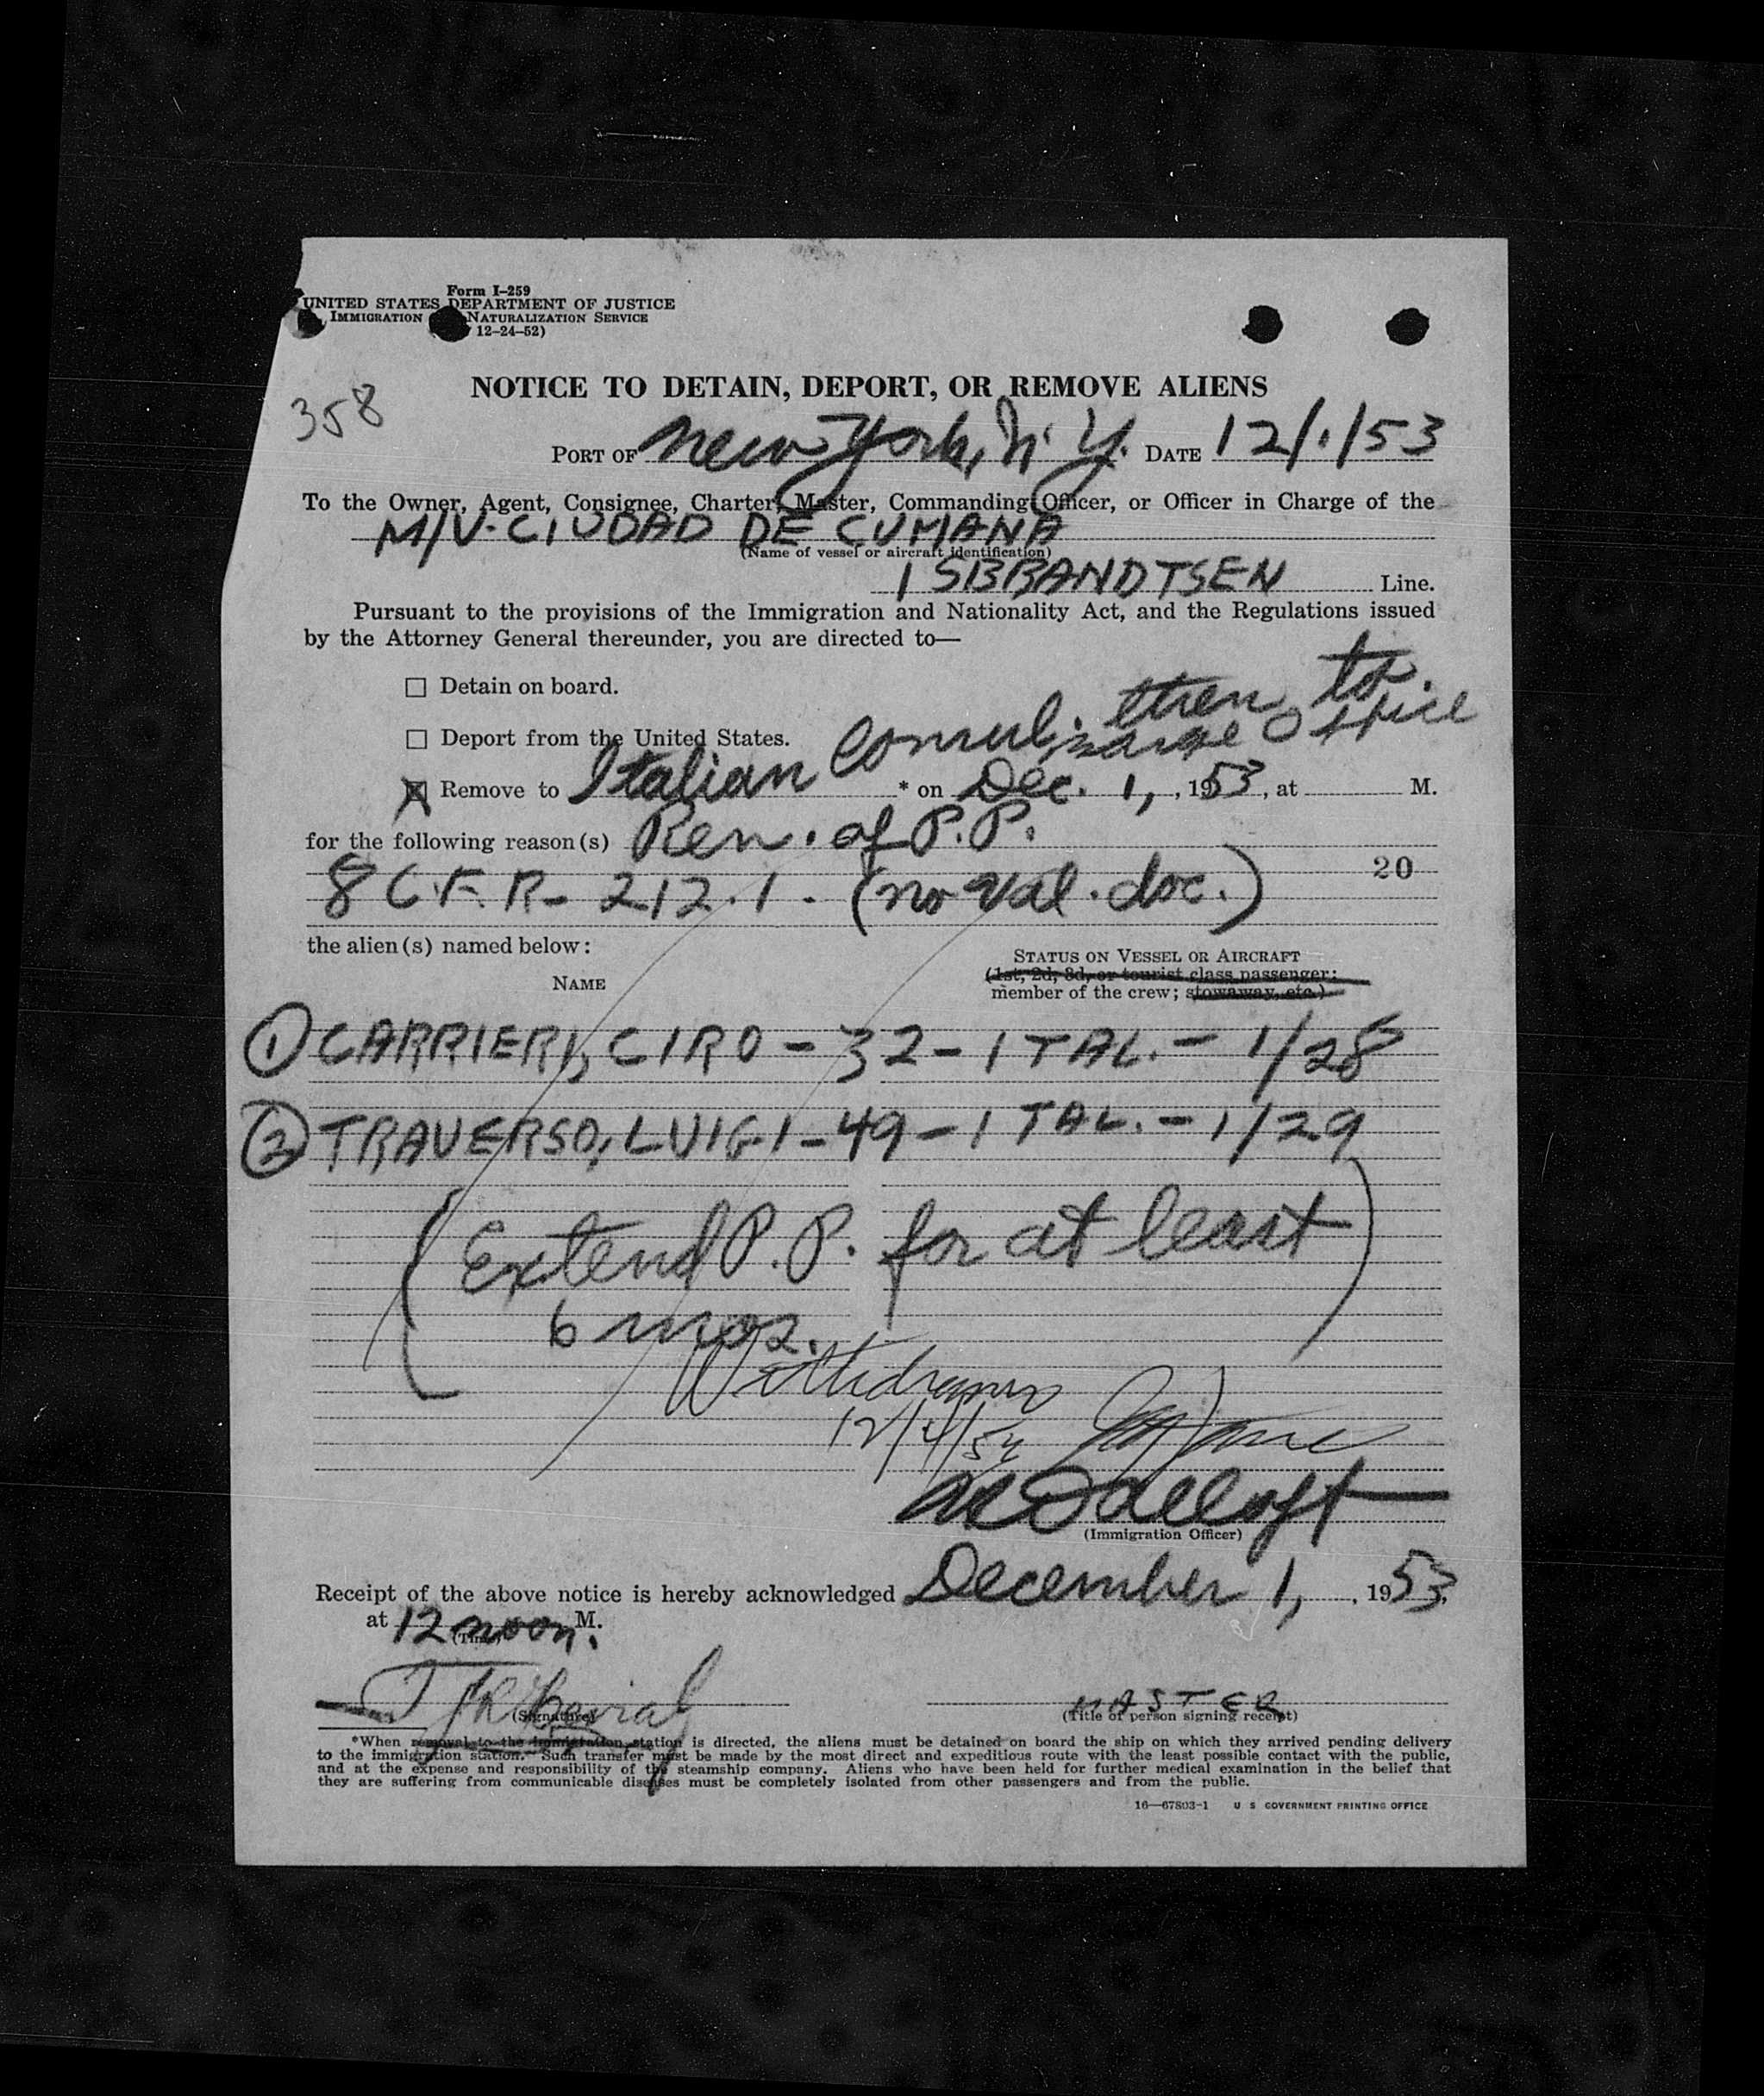 Form I-259
UNITED STATES DEPARTMENT OF JUSTICE
IMMIGRATION NATURALIZATION SERVICE
12-24-52)
358
NOTICE TO DETAIN, DEPORT, OR REMOVE ALIENS
PORT OF New York, N.Y. DATE 12/1/53
To the Owner, Agent, Consignee, Charter, Master, Commanding Officer, or Officer in Charge of the
M/V. CIUDAD DE CUMANA
(Name of vessel or aircraft identification)
ISBRANDTSEN Line.
Pursuant to the provisions of the Immigration and Nationality Act, and the Regulations issued
by the Attorney General thereunder, you are directed to—
☐ Detain on board.
then to
☐ Deport from the United States.
Barge Office
☒ Remove to Italian Consul. * on Dec. 1, , 1953, at M.
for the following reason(s) Ren. of P.P.
20
8 C.F.R- 212.1. (no val. doc.)
the alien(s) named below:
NAME
STATUS ON VESSEL OR AIRCRAFT
(1st, 2d, 3d, or tourist class passenger;
member of the crew; stowaway, etc.)
① CARRIERI, CIRO - 32 - ITAL. - 1/28
② TRAVERSO, LUIGI - 49 - ITAL. - 1/29
(Extend P.P. for at least
6 mos.)
Withdrawn
12/4/54
(Immigration Officer)
Receipt of the above notice is hereby acknowledged December 1, , 1953,
at 12 noon. M.
(Time)
MASTER
(Signature)
(Title of person signing receipt)
*When removal to the immigration station is directed, the aliens must be detained on board the ship on which they arrived pending delivery
to the immigration station. Such transfer must be made by the most direct and expeditious route with the least possible contact with the public,
and at the expense and responsibility of the steamship company. Aliens who have been held for further medical examination in the belief that
they are suffering from communicable diseases must be completely isolated from other passengers and from the public.
16—67803-1 U S GOVERNMENT PRINTING OFFICE